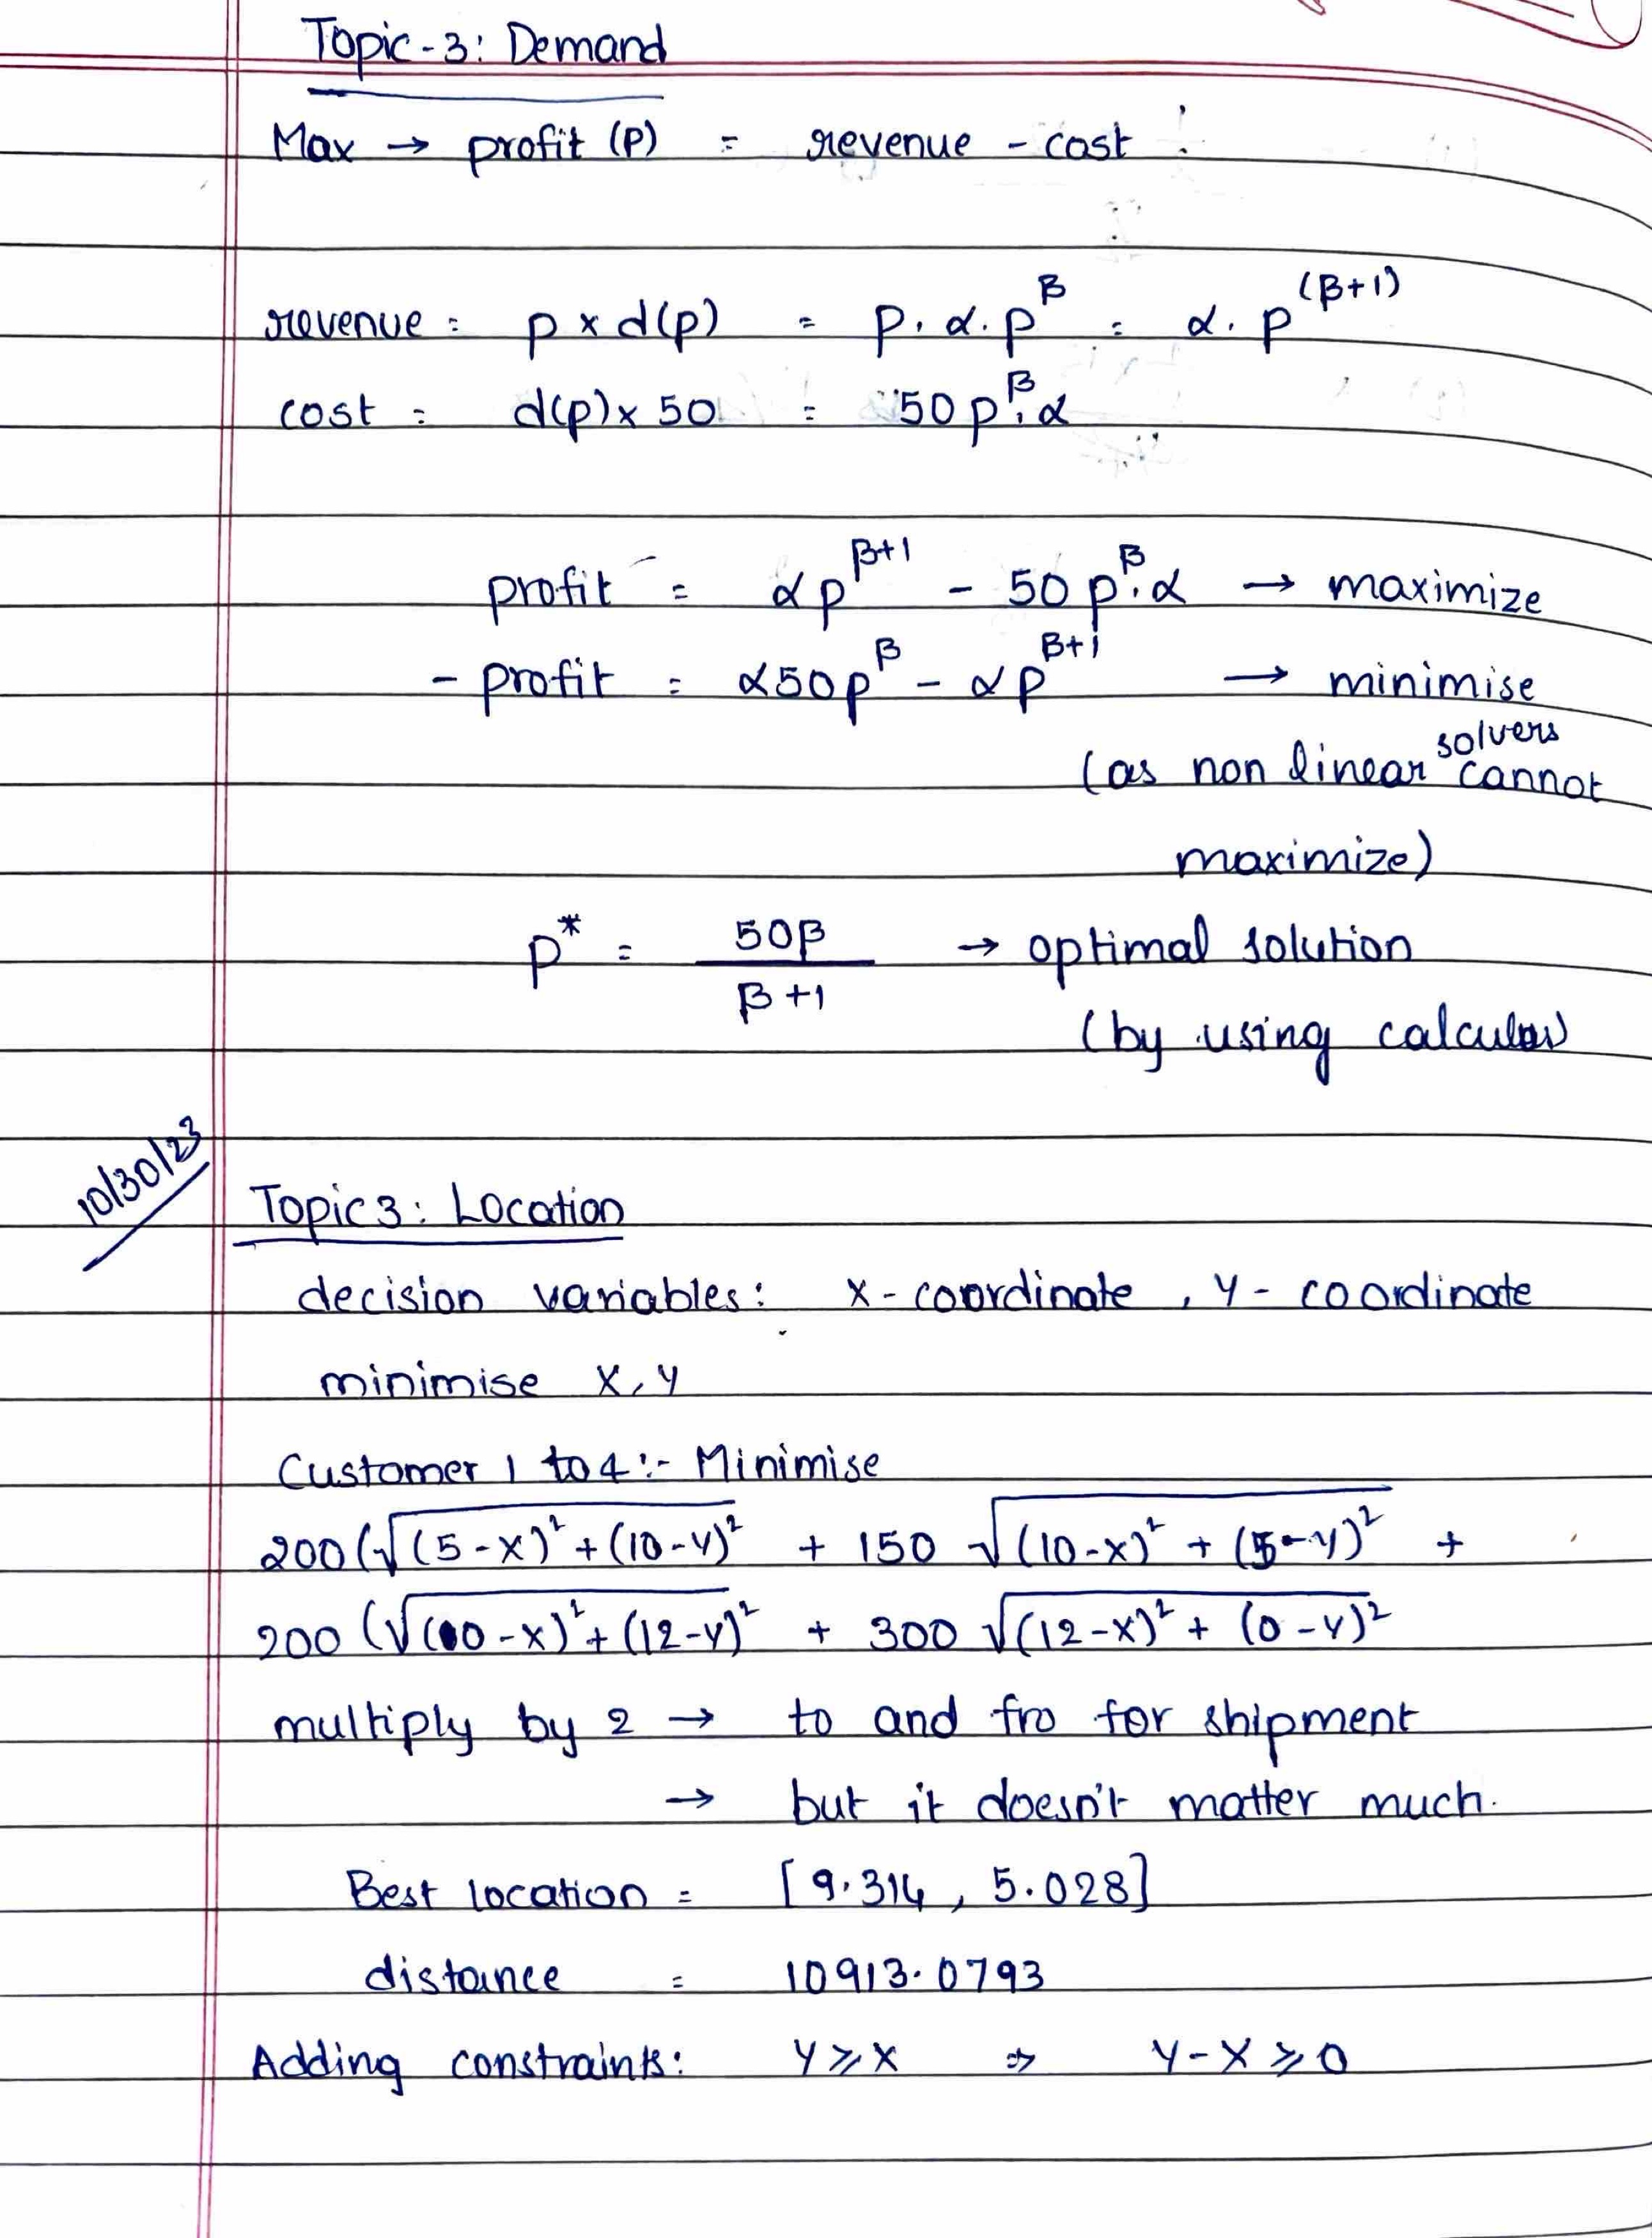 Topic-3: Demand
Max → profit (P) = revenue - cost
revenue = p x d(p) = p. α. p^β = α. p^(β+1)
cost = d(p) x 50 = 50 p^β. α
profit = α p^β+1 - 50 p^β. α → maximize
- profit = α50p^β - αp^β+1 → minimise
(as non linear solvers cannot
maximize)
p* = 50β / β+1 → optimal solution
(by using calculus)
10/30/23
Topic 3: Location
decision variables: X-coordinate, Y-coordinate
minimise X, Y
Customer 1 to 4:- Minimise
200(√(5-X)²+(10-Y)² + 150 √(10-X)² + (5-Y)² +
200 (√(0-X)²+(12-Y)² + 300 √(12-X)² + (0-Y)²
multiply by 2 → to and fro for shipment
→ but it doesn't matter much.
Best location = [9.314, 5.028]
distance = 10913.0793
Adding constraints: Y ≥ X ⇒ Y-X ≥ 0